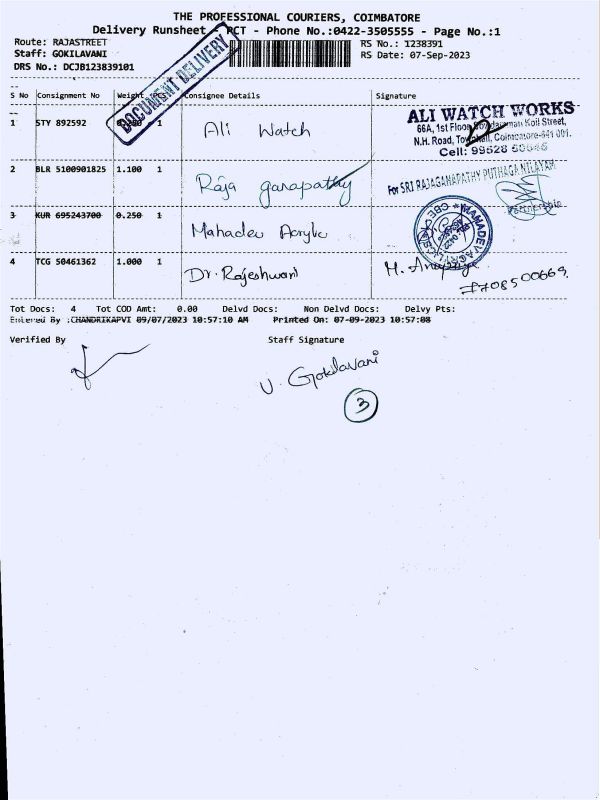 THE PROFESSIONAL COURIERS, COIMBATORE
Delivery Runsheet - RCT - Phone No.:0422-3505555 - Page No.:1
Route: RAJASTREET
RS No.: 1238391
Staff: GOKILAVANI
RS Date: 07-Sep-2023
DRS No.: DCJB123839101
DOCUMENT DELIVERY
S No Consignment No Weight PCS Consignee Details Signature
1 STY 892592 1 Ali Watch
ALI WATCH WORKS
66A, 1st Floor, Koil Street,
N.H. Road, Coimbatore-641 001.
Cell: 99528
2 BLR 5100901825 1.100 1 Raja ganapathy
For SRI RAJAGANAPATHY PUTHAGA NILAYAM
3 KUR 695243700 0.250 1 Mahadev
4 TCG 50461362 1.000 1 Dr. Rajeshwari
Tot Docs: 4 Tot COD Amt: 0.00 Delvd Docs: Non Delvd Docs: Delvy Pts:
Entered By :CHANDRIKAPVI 09/07/2023 10:57:10 AM Printed On: 07-09-2023 10:57:08
Verified By Staff Signature
V. Gokilavani
3